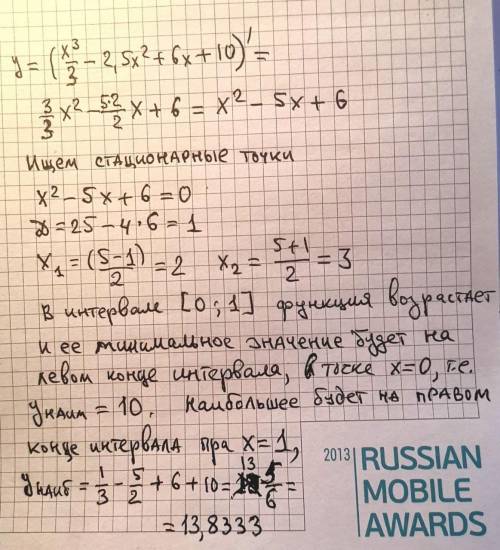 y = (x³/3 − 2,5x² + 6x + 10)' =
3/3 x² − 5·2/2 x + 6 = x² − 5x + 6
Ищем стационарные точки
x² − 5x + 6 = 0
D = 25 − 4·6 = 1
x₁ = (5−1)/2 = 2   x₂ = 5+1/2 = 3
В интервале [0 ; 1] функция возрастает
и ее минимальное значение будет на
левом конце интервала, в точке x=0, т.е.
yнаим = 10. Наибольшее будет на правом
конце интервала при x = 1,
yнаиб = 1/3 − 5/2 + 6 + 10 = 13 5/6 =
= 13,8333
2013 | RUSSIAN
MOBILE
AWARDS